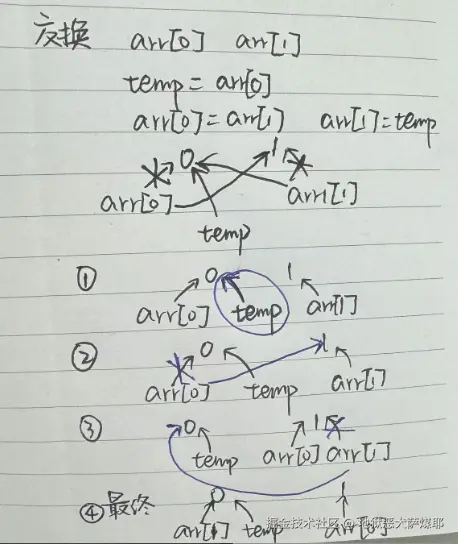 交换 arr[0] arr[1]
temp = arr[0]
arr[0] = arr[1] arr[1] = temp
0 1
arr[0] arr[1]
temp
① 0 1
arr[0] temp arr[1]
② 0 1
arr[0] temp arr[1]
③ 0 1
temp arr[0] arr[1]
④最终 0 1
arr[1] temp arr[0]
掘金技术社区 @ 地狱恶犬萨煤耶